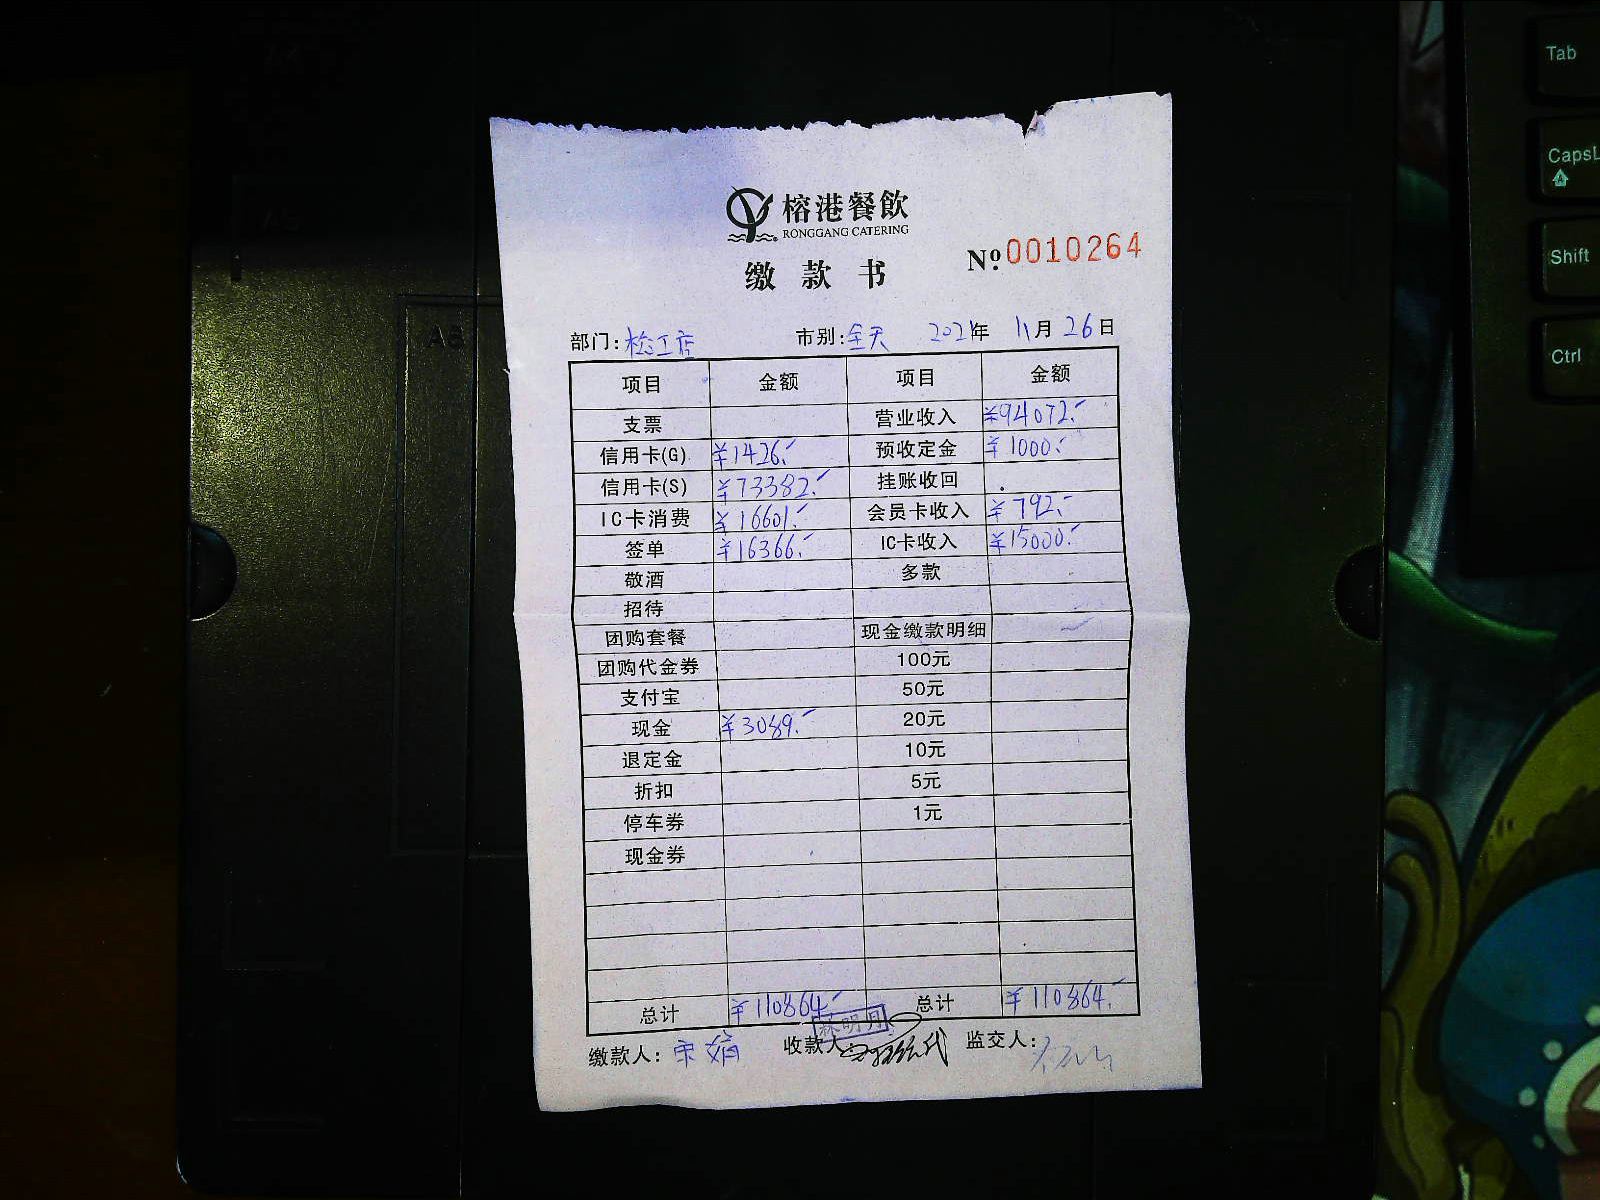 Tab
CapsL
Shift
Ctrl
A5
A6
榕港餐飲
RONGGANG CATERING
缴款书
№ 0010264
部门: 松江店 市别: 全天 2021年 11月 26日
项目 金额 项目 金额
支票 营业收入 ¥94072.-
信用卡(G) ¥1426.- 预收定金 ¥1000.-
信用卡(S) ¥73382.- 挂账收回
IC卡消费 ¥16601.- 会员卡收入 ¥792.-
签单 ¥16366.- IC卡收入 ¥15000.-
敬酒 多款
招待
团购套餐 现金缴款明细
团购代金券 100元
支付宝 50元
现金 ¥3089.- 20元
退定金 10元
折扣 5元
停车券 1元
现金券
总计 ¥110864.- 总计 ¥110864.-
缴款人: 宋娟 收款人: 代 监交人: